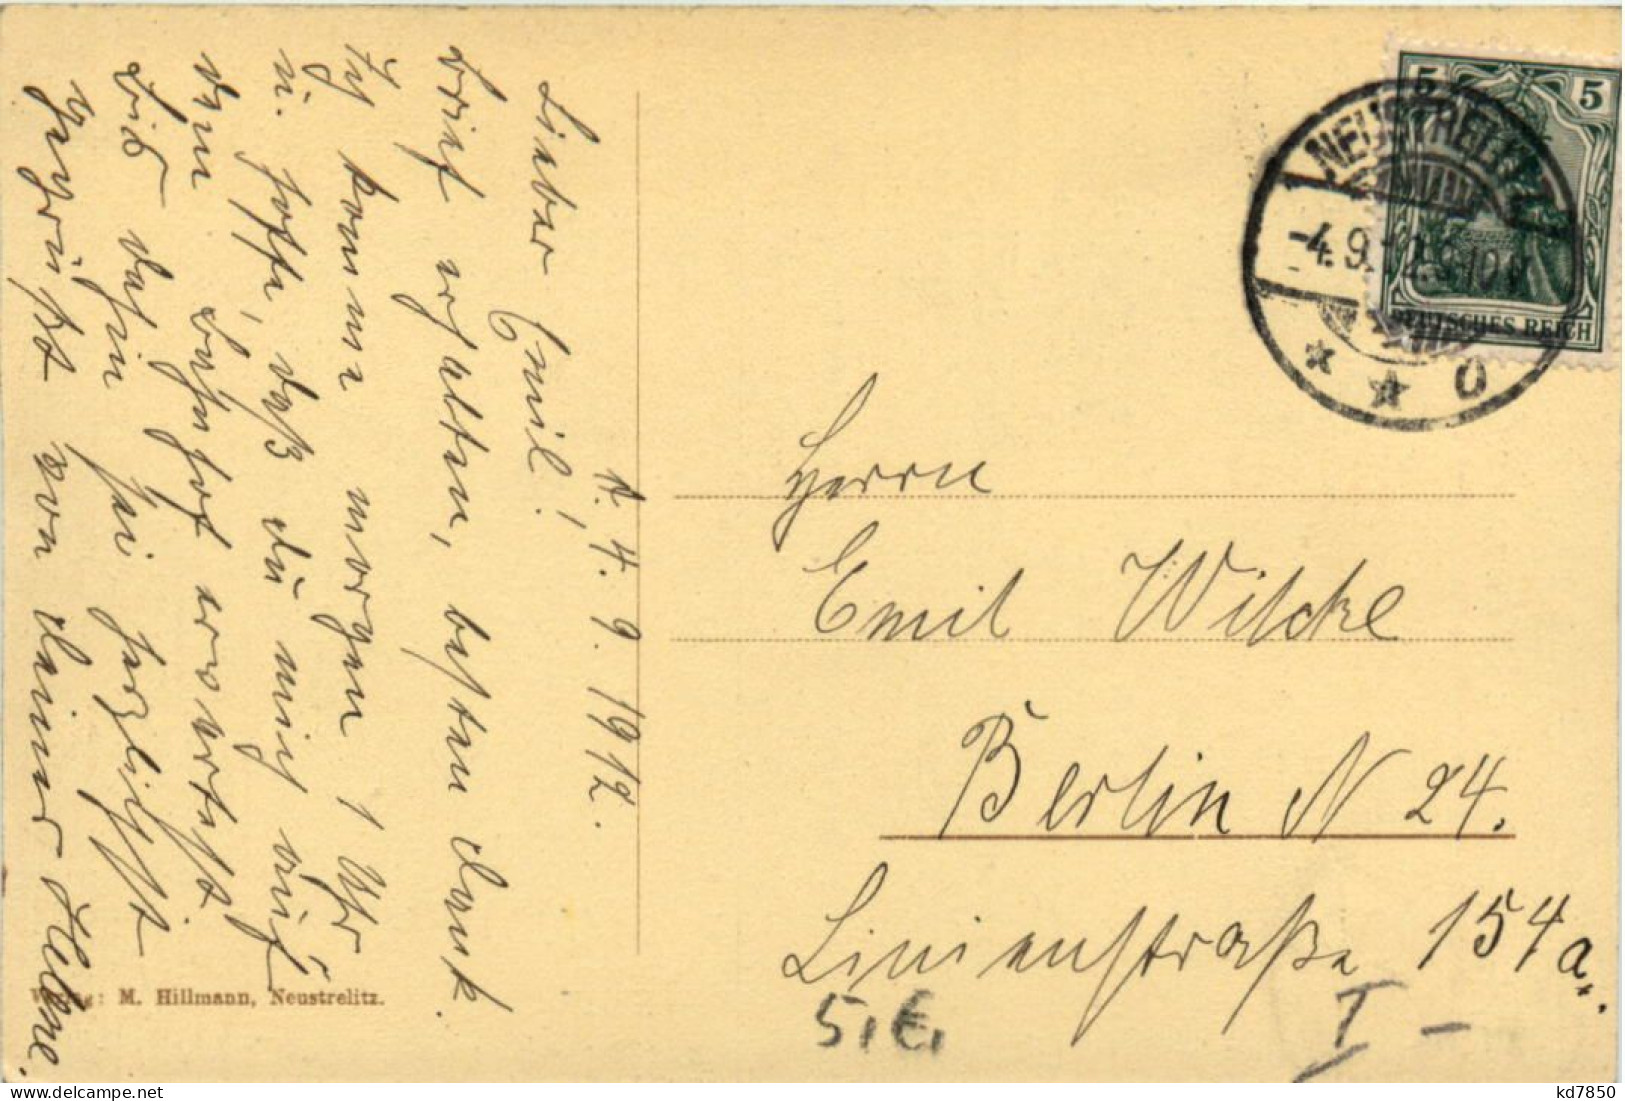 d. 4. 9. 1912.
Lieber Emil!
Brief erhalten, besten Dank.
Ich komme morgen 1 Uhr
u. hoffe, daß du mich auf
dem Bahnhof erwartest.
Bis dahin sei herzlichst
gegrüßt von deiner Helene.
Verlag: M. Hillmann, Neustrelitz.
5 5
DEUTSCHES REICH
NEUSTRELITZ
-4.9.12.9-10V
* * O
Herrn
Emil Wilcke
Berlin N 24.
Linienstraße 154a.
5,€,
I -
kd7850